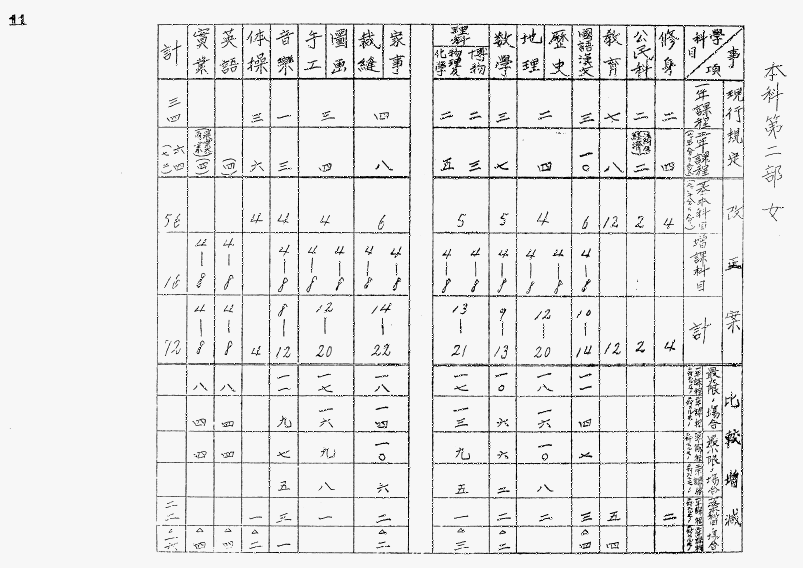 11
本科第二部女
事項 學科目 修身 公民科 教育 國語漢文 歷史 地理 數學 理科 博物 物理及化學 家事 裁縫 圖画 手工 音樂 体操 英語 實業 計
現行規定
一年課程 二 二 七 三 二 二 三 二 二 四 三 一 三 三四
二年課程 四 二 八 一〇 四 七 三 五 四 三 六 (四) (四) 六四
改正案
基本科目 4 2 12 6 4 5 5 6 4 4 4 56
増課科目 4—8 4—8 4—8 4—8 4—8 4—8 4—8 4—8 4—8 4—8 4—8 4—8 4—8 16
計 4 2 12 10—14 12—20 9—13 13—21 14—22 12—20 8—12 4 4—8 4—8 72
比較増減
最大限ノ場合
一一 一八 一〇 一七 一八 一七 一一 八 八
四 一六 六 一三 一四 一六 九 四 四
最小限ノ場合
七 一〇 六 九 一〇 九 七 四 四
八 二 五 六 八 五
二 五 三 二 二 一 二 一 三 一 二二
四 △四 △二 △三 △二 一 △二 △四 △四